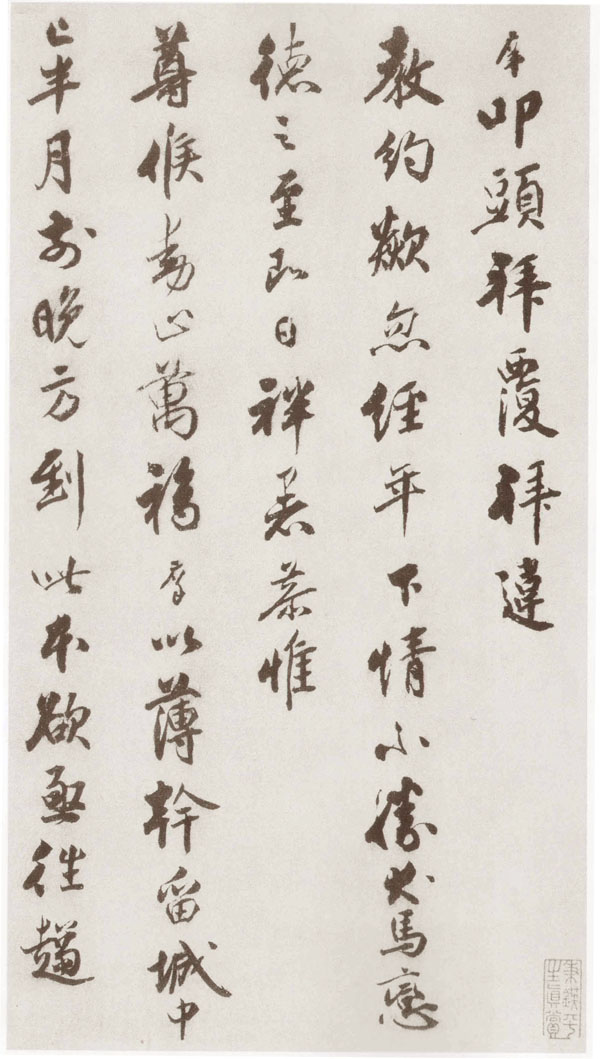 叩頭拜覆拜違
教約歘忽經年下情不勝犬馬戀
德之至即日袢暑恭惟
尊候動止萬福以薄幹留城中
已半月前晚方到此本欲亟往趨